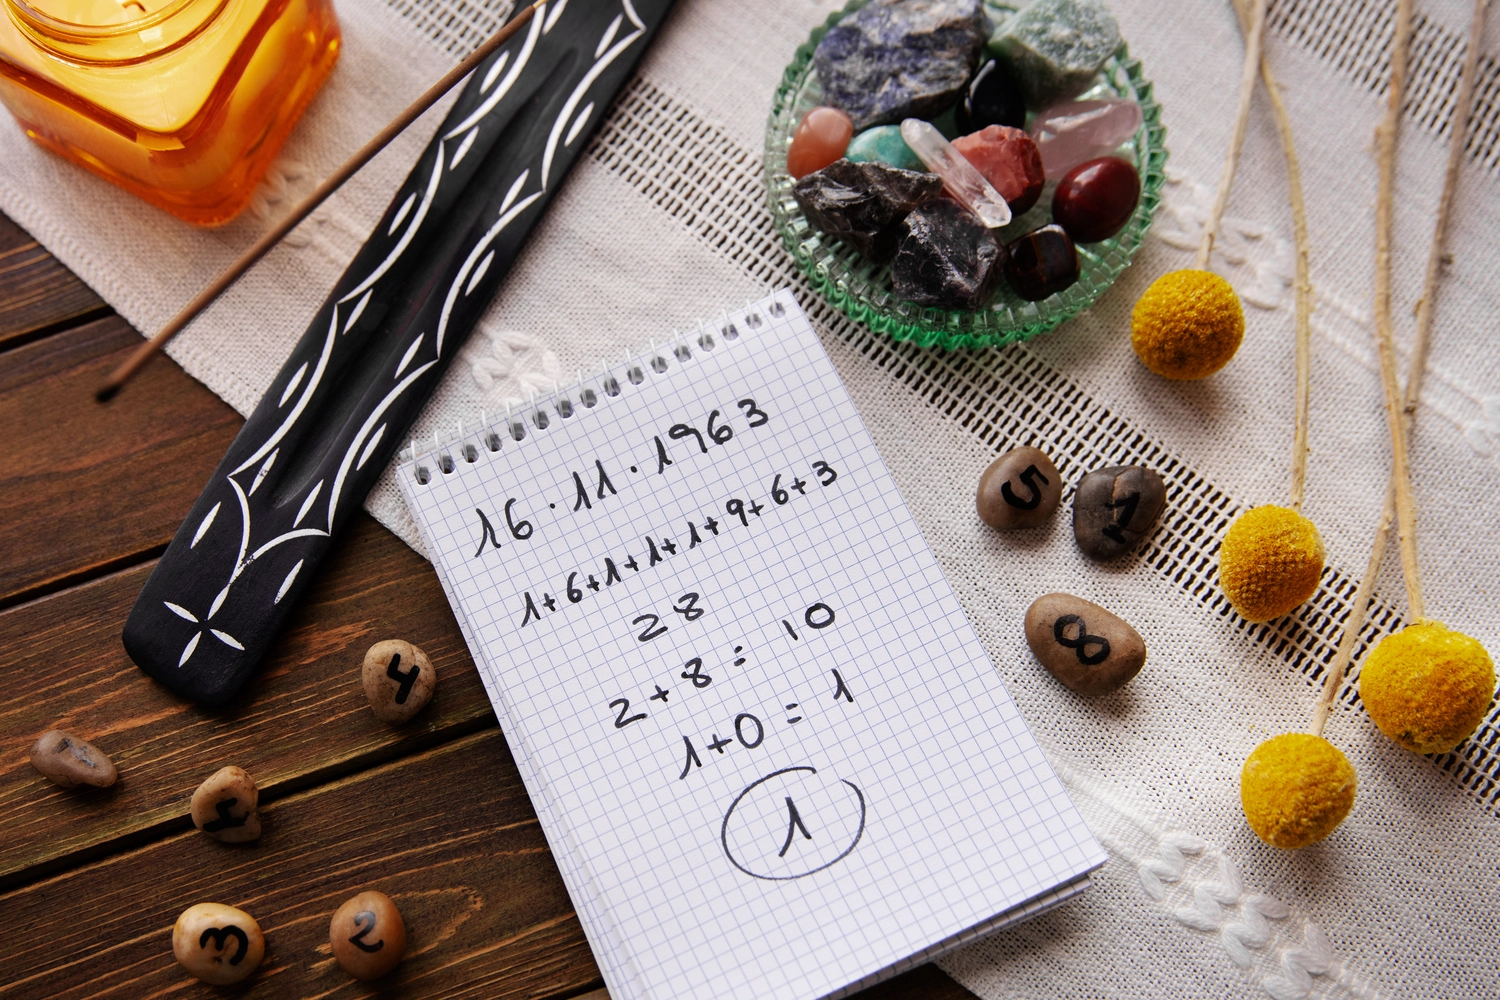 16.11.1963
1+6+1+1+1+9+6+3
28
2+8=10
1+0=1
1
5
1
8
4
4
3
2